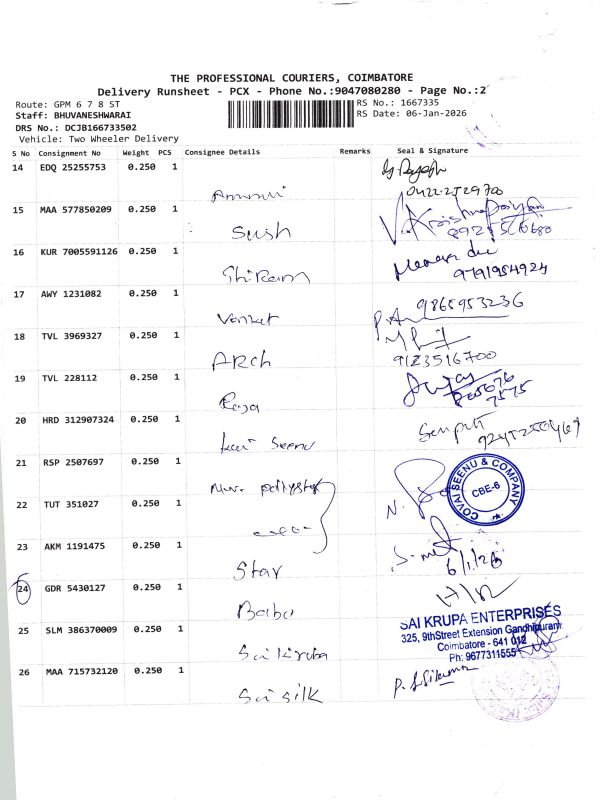 THE PROFESSIONAL COURIERS, COIMBATORE
Delivery Runsheet - PCX - Phone No.:9047080280 - Page No.:2
Route: GPM 6 7 8 ST
RS No.: 1667335
Staff: BHUVANESHWARAI
RS Date: 06-Jan-2026
DRS No.: DCJB166733502
Vehicle: Two Wheeler Delivery
S No Consignment No Weight PCS Consignee Details Remarks Seal & Signature
14 EDQ 25255753 0.250 1
0422-2529700
15 MAA 577850209 0.250 1
Sush
16 KUR 7005591126 0.250 1
9791954924
17 AWY 1231082 0.250 1
9865953236
Venkat
18 TVL 3969327 0.250 1
ARCh
9123516700
19 TVL 228112 0.250 1
Raja
20 HRD 312907324 0.250 1
Seenu
21 RSP 2507697 0.250 1
COVAI SEENU & COMPANY
CBE-6
22 TUT 351027 0.250 1
23 AKM 1191475 0.250 1
Star
6/1/26
24 GDR 5430127 0.250 1
Babu
25 SLM 386370009 0.250 1
SAI KRUPA ENTERPRISES
325, 9thStreet Extension Gandhipuram
Coimbatore - 641 012
Ph: 9677311555
Sai Kiruba
26 MAA 715732120 0.250 1
Sai silk